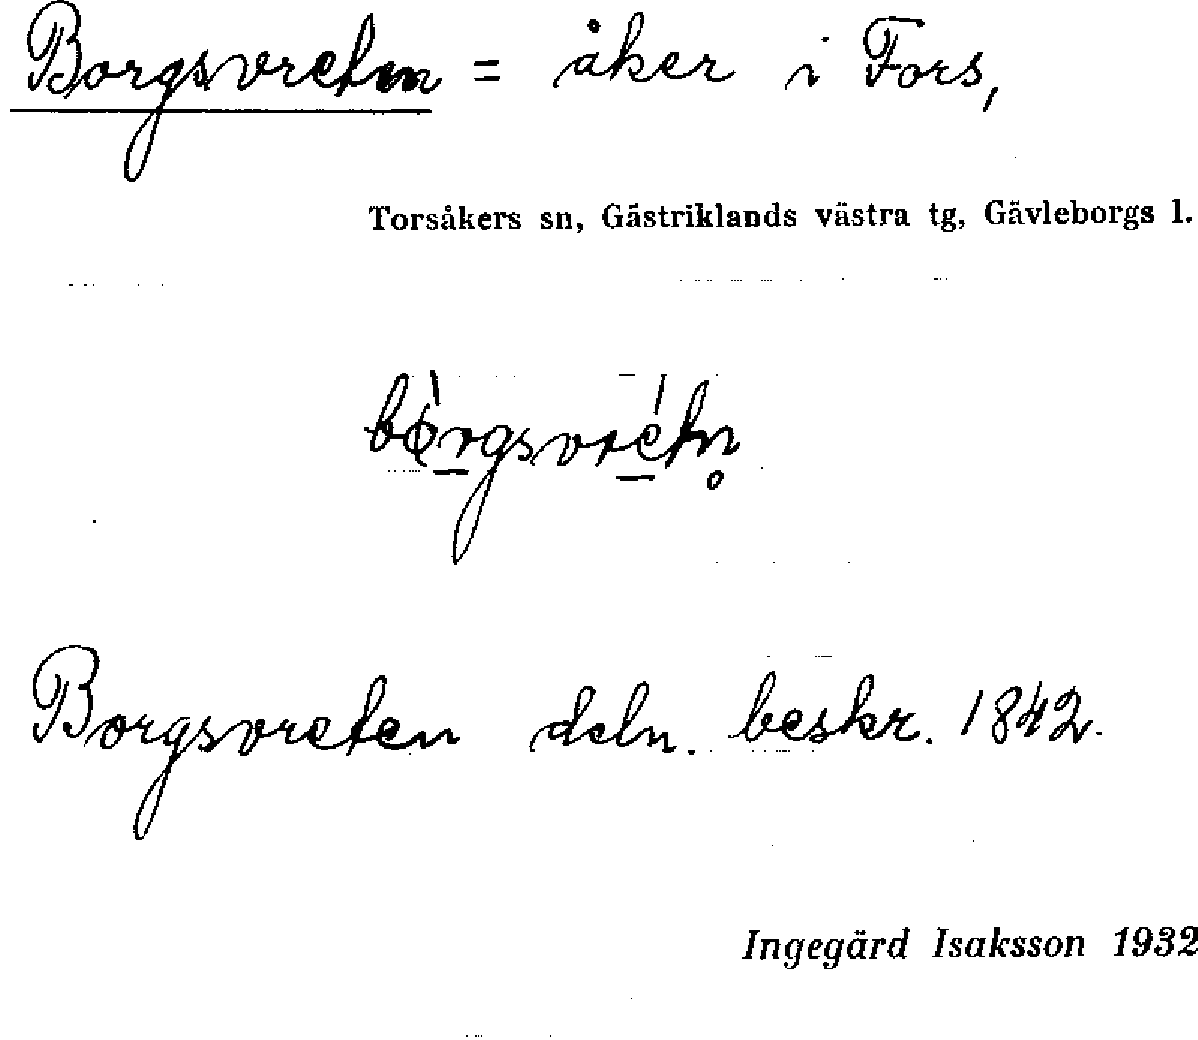 Borgsvreten = åker i Fors,
Torsåkers sn, Gästriklands västra tg, Gävleborgs l.
bòrgsvrétn̥
Borgsvreten deln. beskr. 1842.
Ingegärd Isaksson 1932